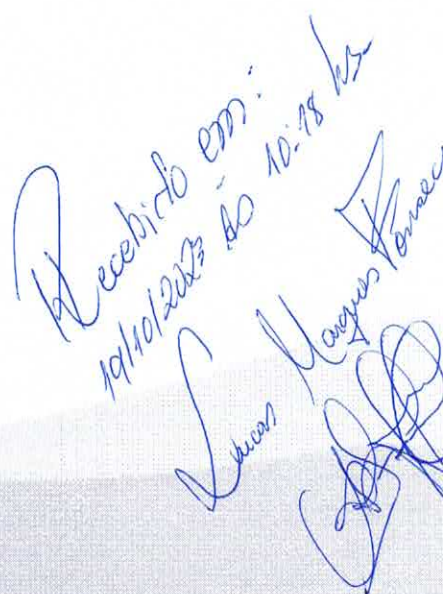 Recebido em:
19/10/2023 às 10:18 hs
Lucas Marques Fonseca